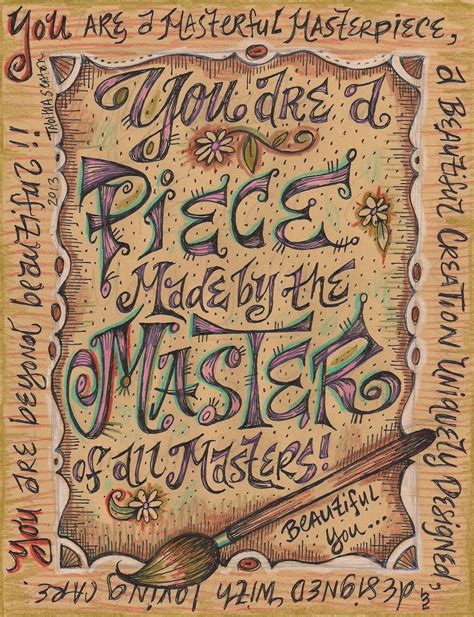 You are, a Masterful Masterpiece,
a Beautiful Creation Uniquely Designed,
designed with loving care.
You are beyond beautiful!!
Tabitha Seaton
2013
You are a
Piece
Made by the
Master
of all Masters!
Beautiful
You...